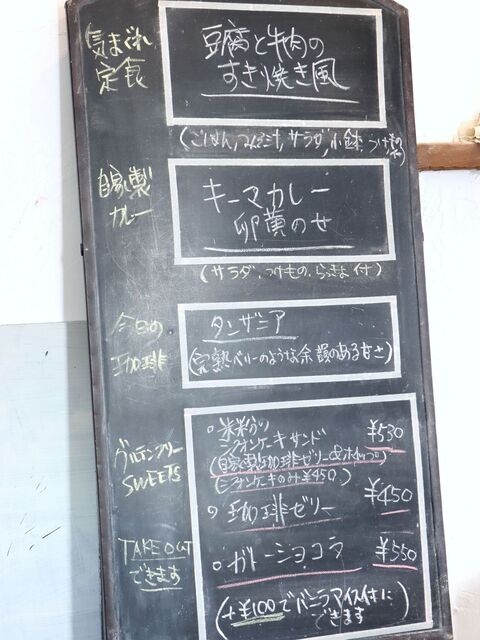 気まぐれ
定食
豆腐と牛肉の
すき焼き風
(ごはん,みそ汁,サラダ,小鉢,つけもの)
自家製
カレー
キーマカレー
卵黄のせ
(サラダ、つけもの、らっきょ付)
今日の
珈琲
タンザニア
(完熟ベリーのような余韻のある甘さ)
グルテンフリー
SWEETS
TAKE OUT
できます
○米粉の
シフォンケーキサンド ¥530
(自家製珈琲ゼリー&ホイップ)
(シフォンケーキのみ¥450)
○珈琲ゼリー ¥450
○ガトーショコラ ¥550
(+¥100でバニラアイス付に
できます)